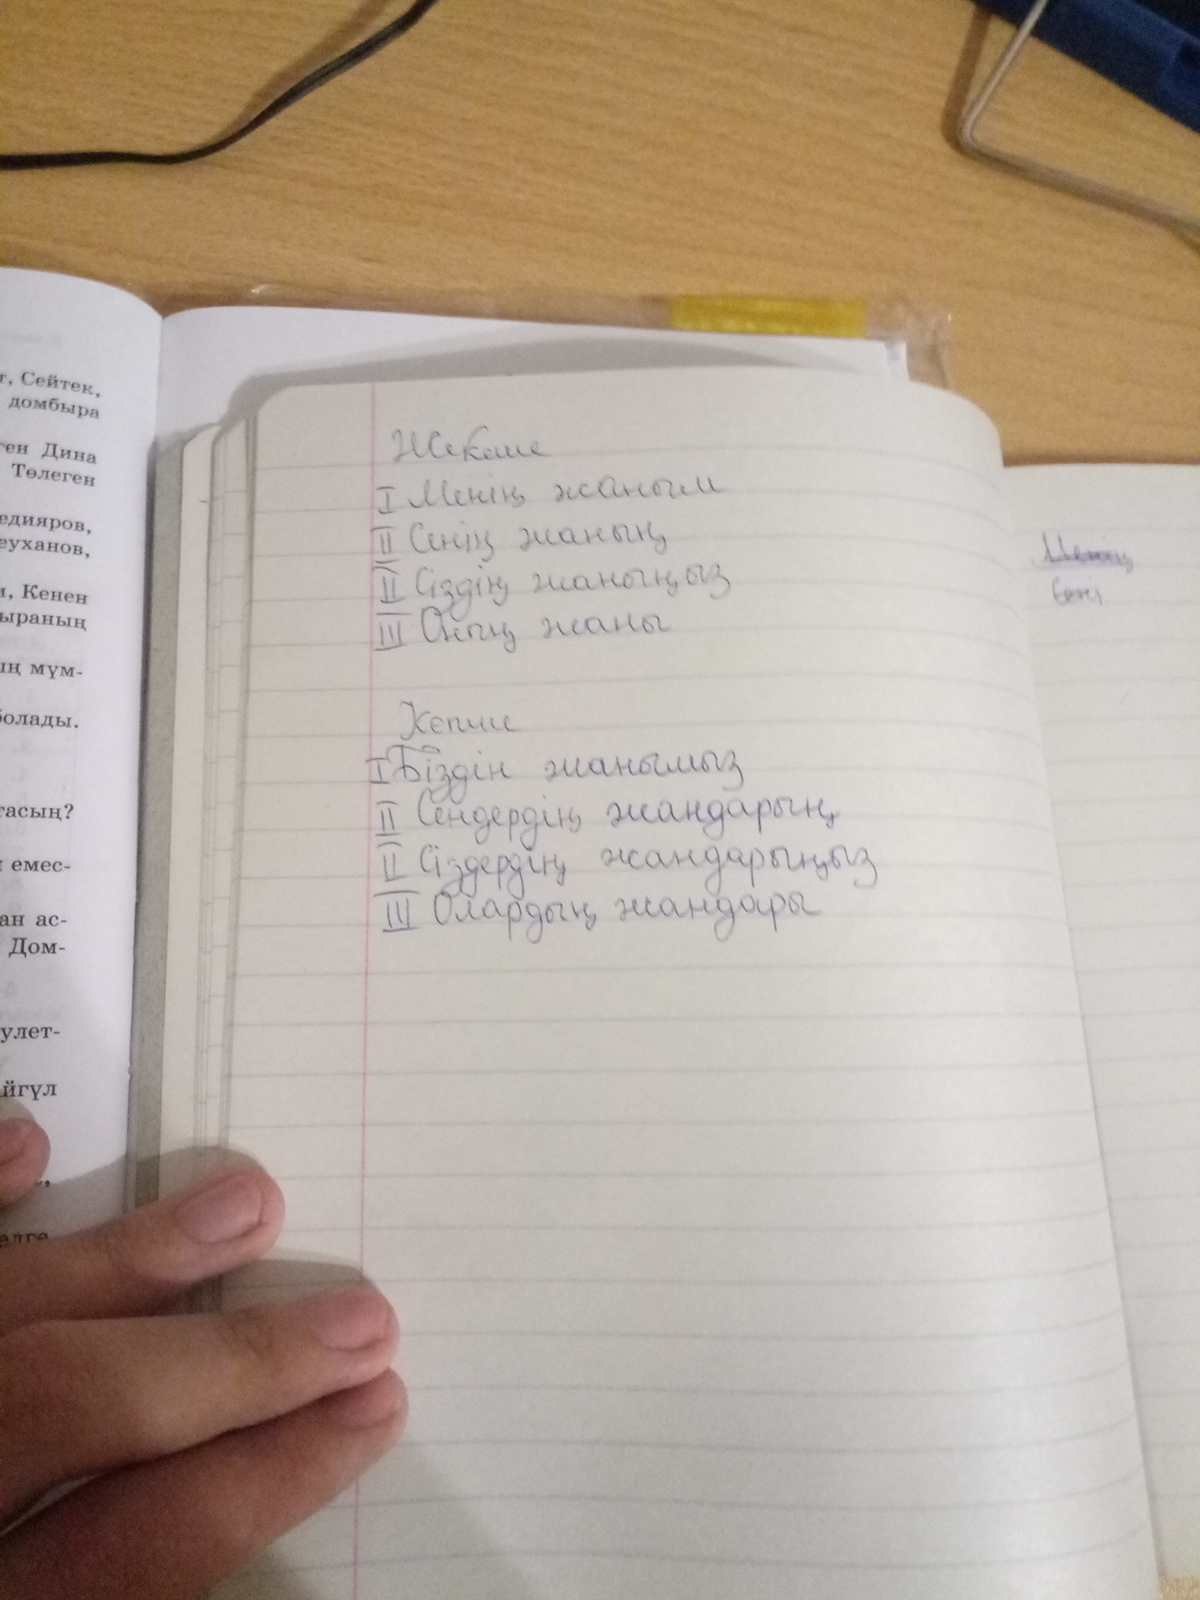 т, Сейтек,
домбыра
ген Дина
Төлеген
едияров,
еуханов,
и, Кенен
ыраның
ың мүм-
болады.
тасың?
емес-
ан ас-
Дом-
улет-
йгүл
елге
Жекеше
I Менің жаным
II Сенің жаның
II Сіздің жаныңыз
III Оның жаны
Көпше
I Біздін жанымыз
II Сендердің жандарың
II Сіздердің жандарыңыз
III Олардың жандары
Менің